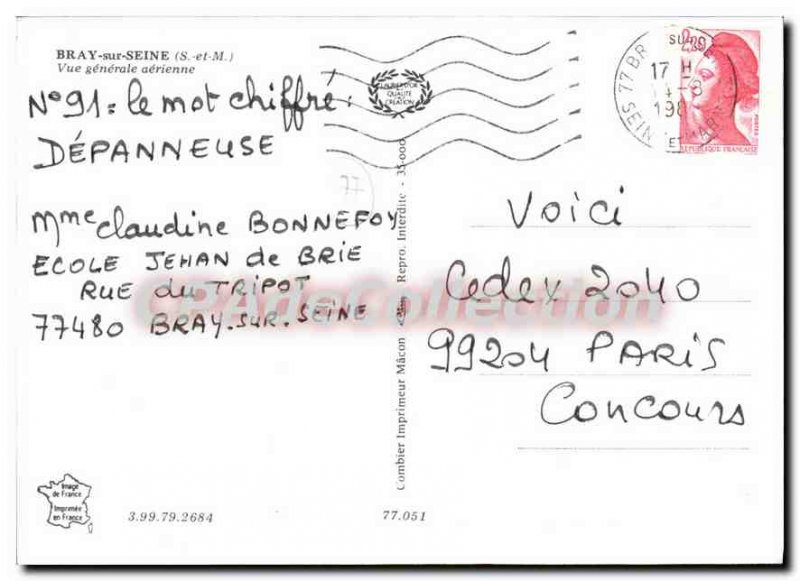 BRAY-sur-SEINE (S.-et-M.)
Vue générale aérienne
N°91 = le mot chiffré :
DÉPANNEUSE
77
Mme Claudine BONNEFOY
ECOLE JEHAN de BRIE
RUE du TRIPOT
77480 BRAY-SUR-SEINE
Image
de France
Imprimée
en France
3.99.79.2684
77.051
Combier Imprimeur Mâcon Repro. Interdite - 35-000
QUALITÉ
CRÉATION
77 BR SUR
17 H
14-8
198
SEINE ET MARNE
2,20
REPUBLIQUE FRANCAISE
Voici
Cedex 2040
99204 PARIS
Concours